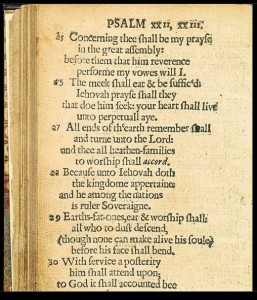 PSALM XXII, XXIII.
25 Concerning thee shall be my prayse
in the great assembly:
before them that him reverence
performe my vowes will I.
26 The meek shall eat & be suffic'd
Iehovah prayse shall they
that doe him seek: your heart shall live
unto perpetuall aye.
27 All ends of th'earth remember shall
and turne unto the Lord:
and thee all heathen-families
to worship shall accord.
28 Because unto Iehovah doth
the kingdome appertaine:
and he among the nations
is ruler Soveraigne.
29 Earths-fat-ones, eat & worship shall:
all who to dust descend,
(though none can make alive his soule)
before his face shall bend.
30 With service a posterity
him shall attend upon;
to God it shall accounted bee